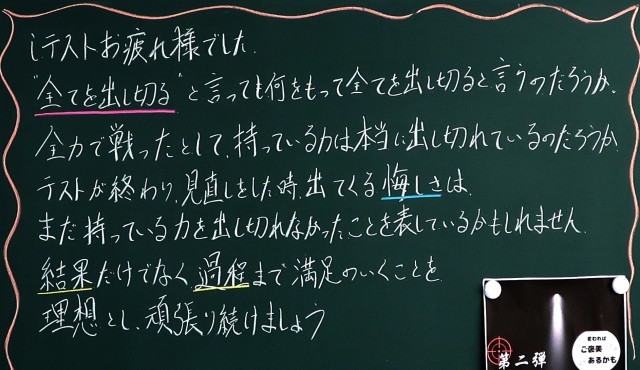 iテストお疲れ様でした.
"全てを出し切る"と言っても何をもって全てを出し切ると言うのだろうか.
全力で戦ったとして、持っている力は本当に出し切れているのだろうか
テストが終わり、見直しをした時、出てくる悔しさは、
まだ持っている力を出し切れなかったことを表しているかもしれません.
結果だけでなく過程まで満足のいくことを
理想とし、頑張り続けましょう
変われば
ご褒美
あるかも
第二弾